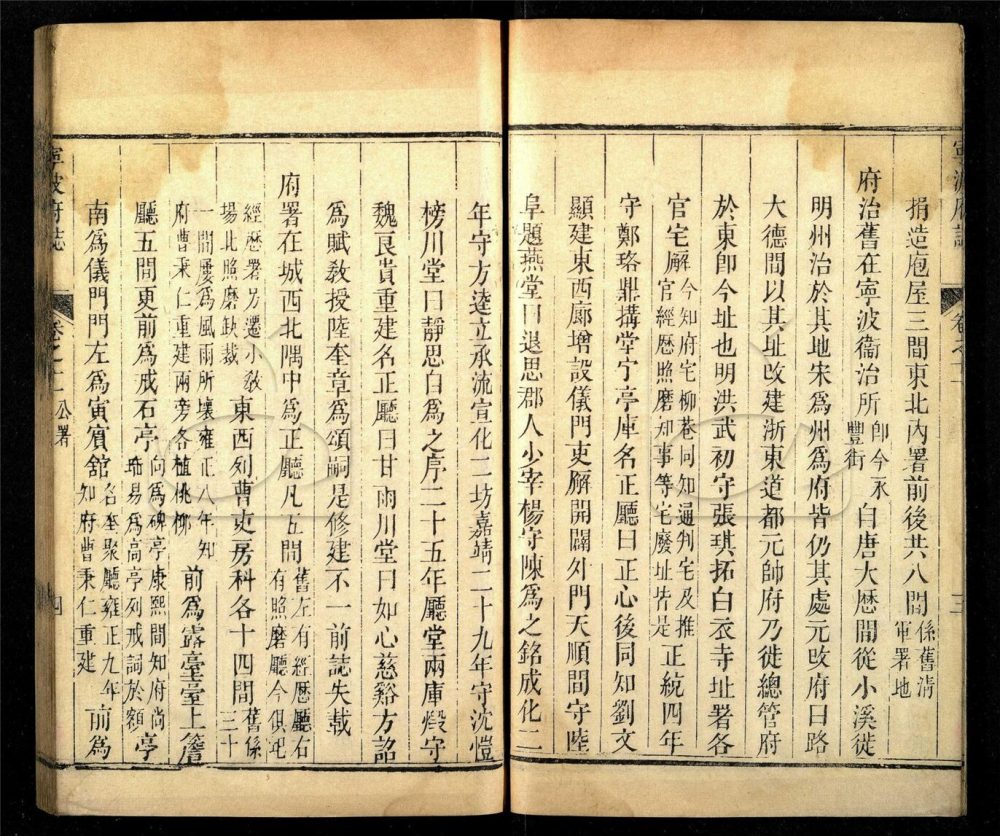 寧波府志
卷之十
三
捐造庖屋三間東北內署前後共八間係舊清軍署地
府治舊在寧波衞治所即今永豐街自唐大歴間從小溪徙
明州治於其地宋爲州爲府皆仍其處元改府曰路
大德間以其址改建浙東道都元帥府乃徙總管府
於東卽今址也明洪武初守張琪拓白衣寺址署各
官宅廨今知府宅柳巷同知通判宅及推官經歴照磨知事等宅廢址皆是正統四年
守鄭珞鼎搆堂宁亭庫名正廳曰正心後同知劉文
顯建東西廊增設儀門吏廨開闢外門天順間守陸
阜題燕堂曰退思郡人少宰楊守陳爲之銘成化二
年守方逵立承流宣化二坊嘉靖二十九年守沈愷
榜川堂曰靜思自爲之序二十五年廳堂兩庫燬守
魏良貴重建名正廳曰甘雨川堂曰如心慈谿方詔
爲賦敎授陸奎章爲頌嗣是修建不一前誌失載
府署在城西北隅中爲正廳凡五間舊左有經歴廳右有照磨廳今俱圮
經歴署另遷小敎場北照磨缺裁東西列曹吏房科各十四間舊係三十
一間屢爲風雨所壞雍正八年知府曹秉仁重建兩旁各植桃柳前爲露臺臺上簷
廳五間更前爲戒石亭向爲碑亭康熙間知府尚易爲高亭列戒詞於額亭
南爲儀門門左爲寅賓舘名奎聚廳雍正九年知府曹秉仁重建前爲
寧波府志
卷之十一
公署
四